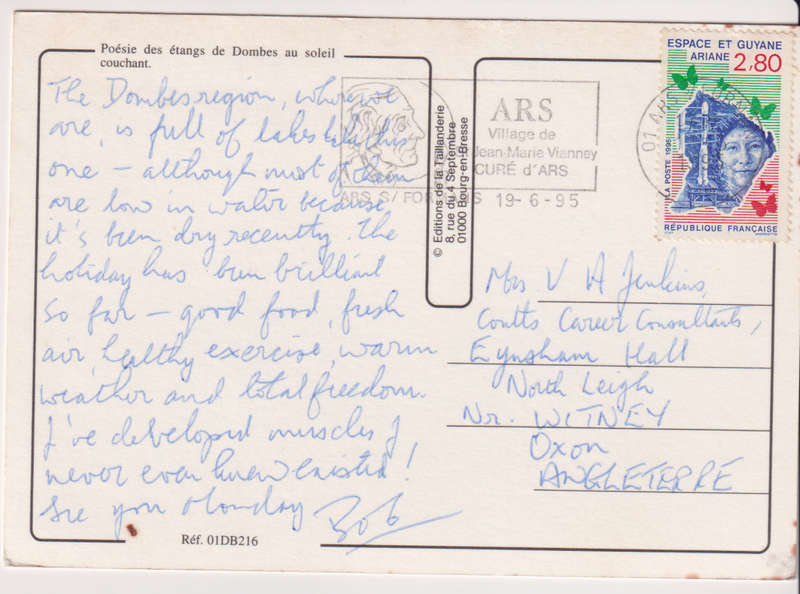 Poésie des étangs de Dombes au soleil
couchant.
The Dombes region, where we
are, is full of lakes like this
one – although most of them
are low in water because
it's been dry recently. The
holiday has been brilliant
so far – good food, fresh
air, healthy exercise, warm
weather and total freedom.
I've developed muscles I
never even knew existed!
See you Monday Bob
Réf. 01DB216
© Editions de la Taillanderie
8, rue du 4 Septembre
01000 Bourg-en-Bresse
ARS
Village de
Jean-Marie Vianney
CURÉ d'ARS
ARS S/ FORMANS 19-6-95
01 ARS
ESPACE ET GUYANE
ARIANE 2,80
LA POSTE 1995
RÉPUBLIQUE FRANÇAISE
Mrs V A Jenkins,
Coutts Career Consultants,
Eynsham Hall
North Leigh
Nr. WITNEY
Oxon
ANGLETERRE